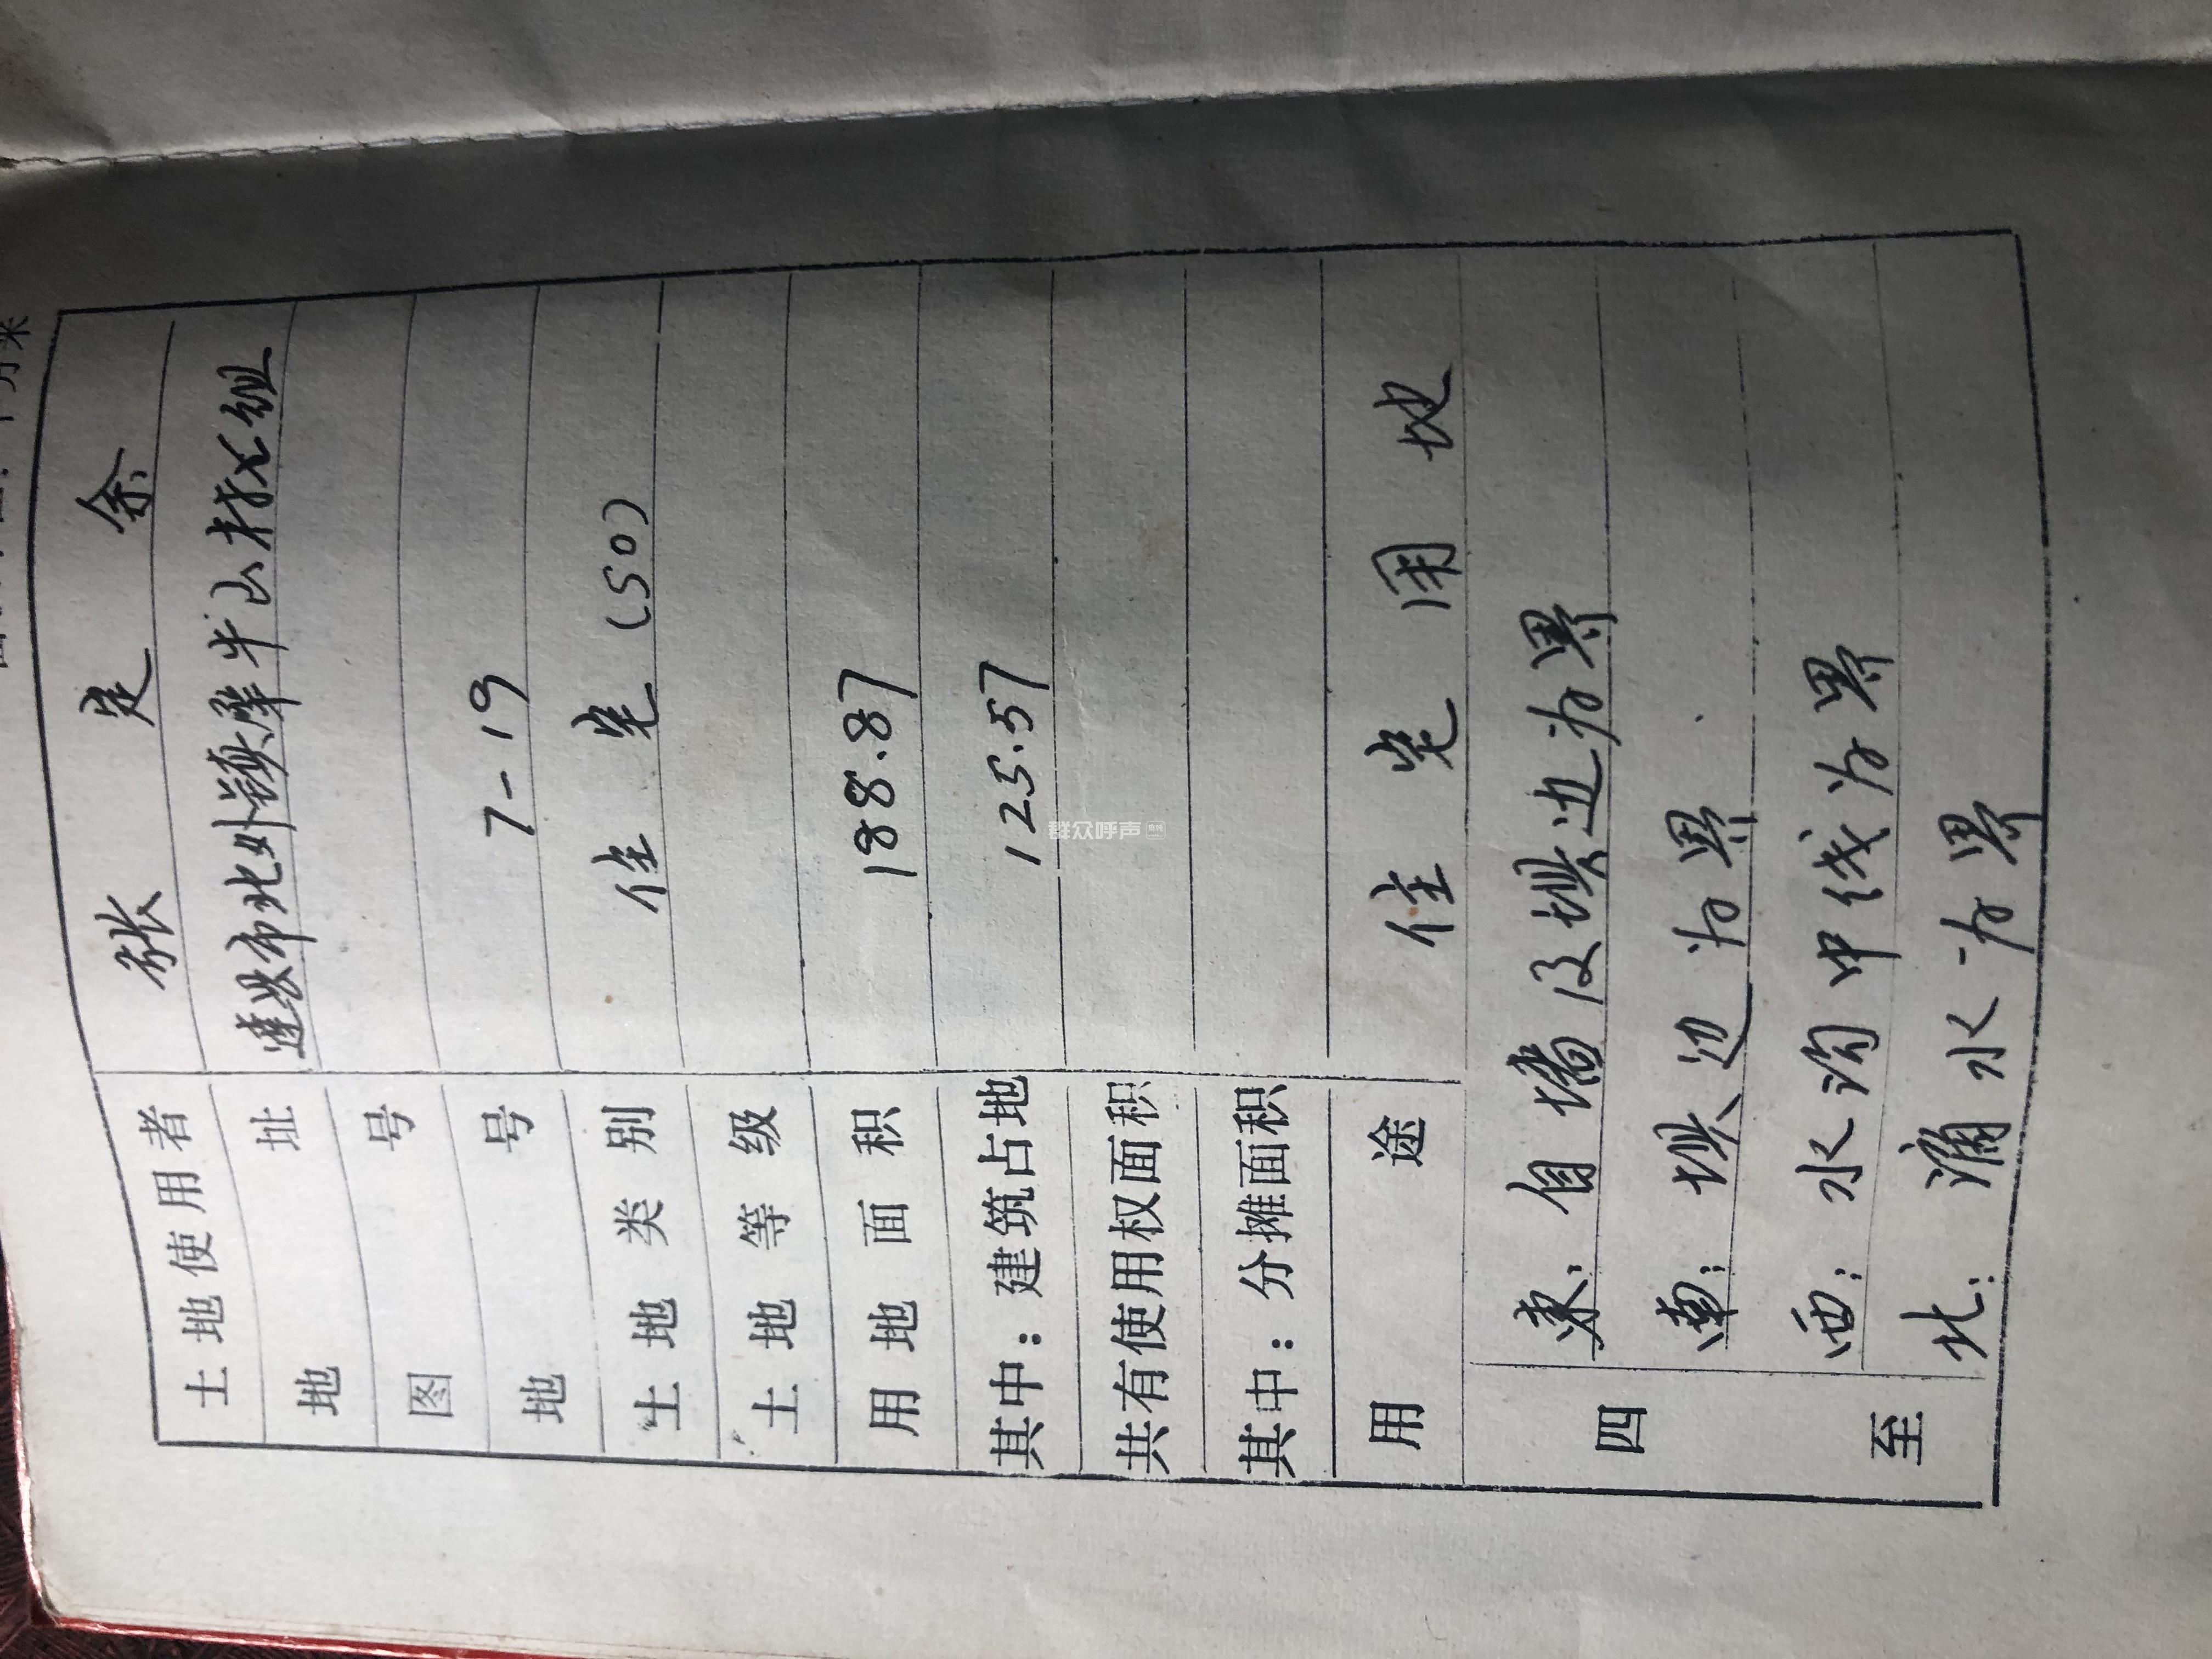 土地使用者 张定余
地址 达县市北外镇犀牛山村七组
图号
地号 7-19
土地类别 住宅(50)
土地等级
用地面积 188.87
其中：建筑占地 125.57
共有使用权面积
其中：分摊面积
用途 住宅用地
四至
东：自墙及坝边为界
南：坝边为界
西：水沟中线为界
北：滴水为界
群众呼声